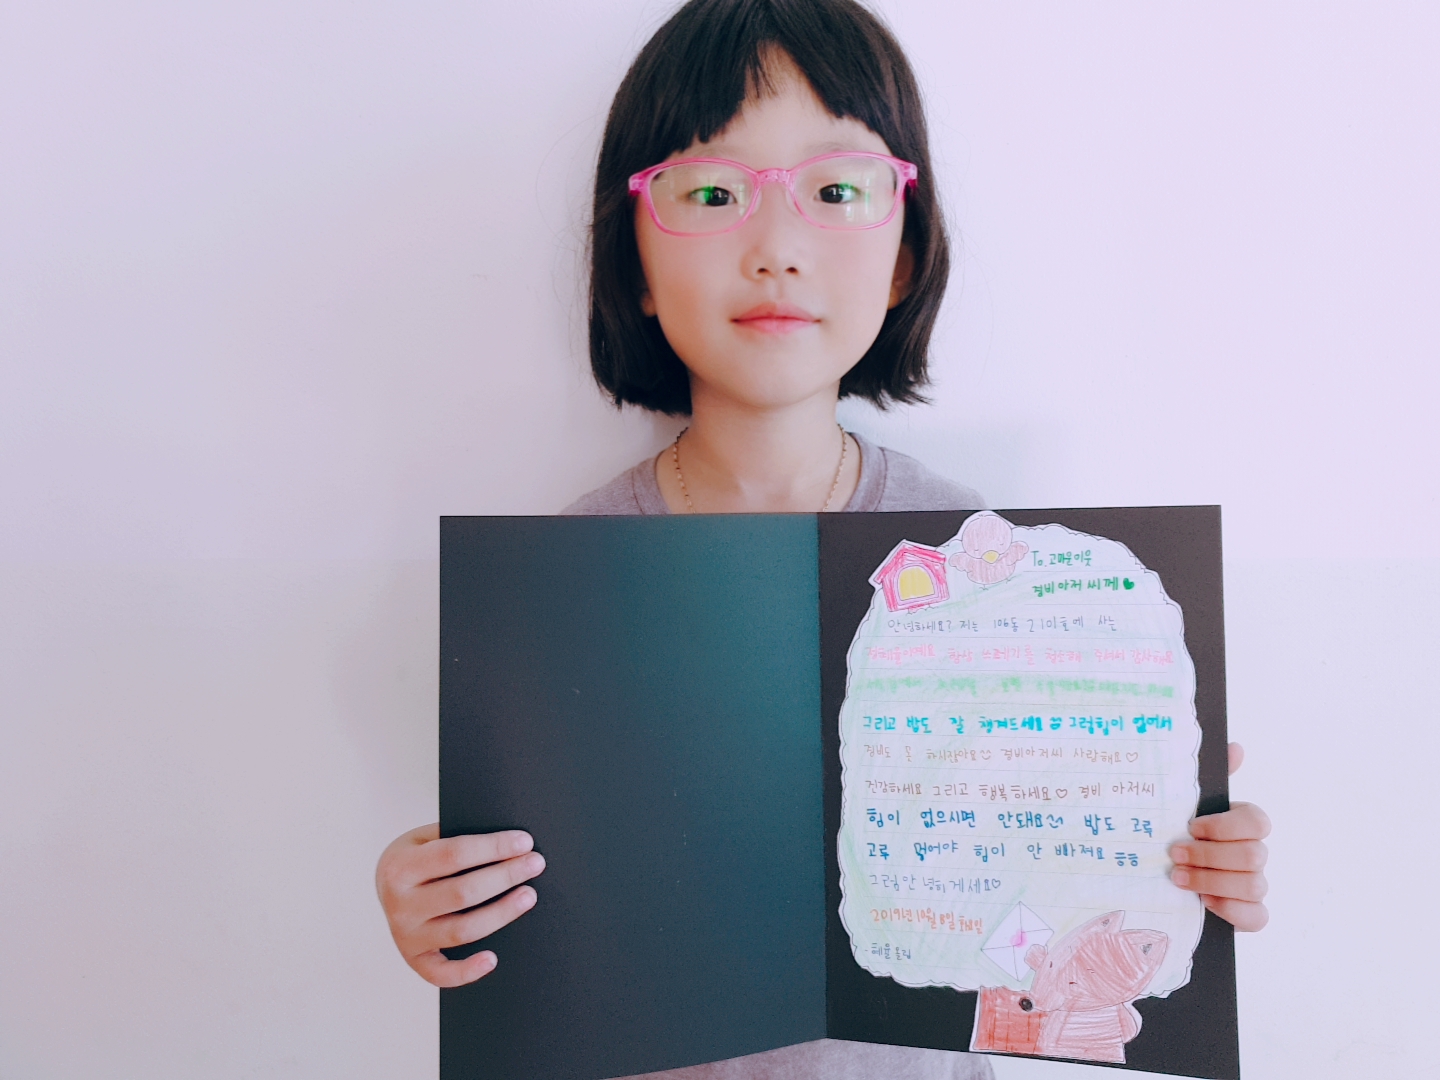 To. 고마운이웃
경비아저씨께
안녕하세요? 저는 106동 2101호에 사는
항상 쓰레기를 청소해 주셔서 감사해요
그리고 밥도 잘 챙겨드세요 그럼힘이 없어서
경비도 못 하시잖아요 경비아저씨 사랑해요♡
건강하세요 그리고 행복하세요♡ 경비 아저씨
힘이 없으시면 안돼요 밥도 고루
고루 먹어야 힘이 안 빠져요 흠흠
그럼안녕히게세요♡
2019년10월8일